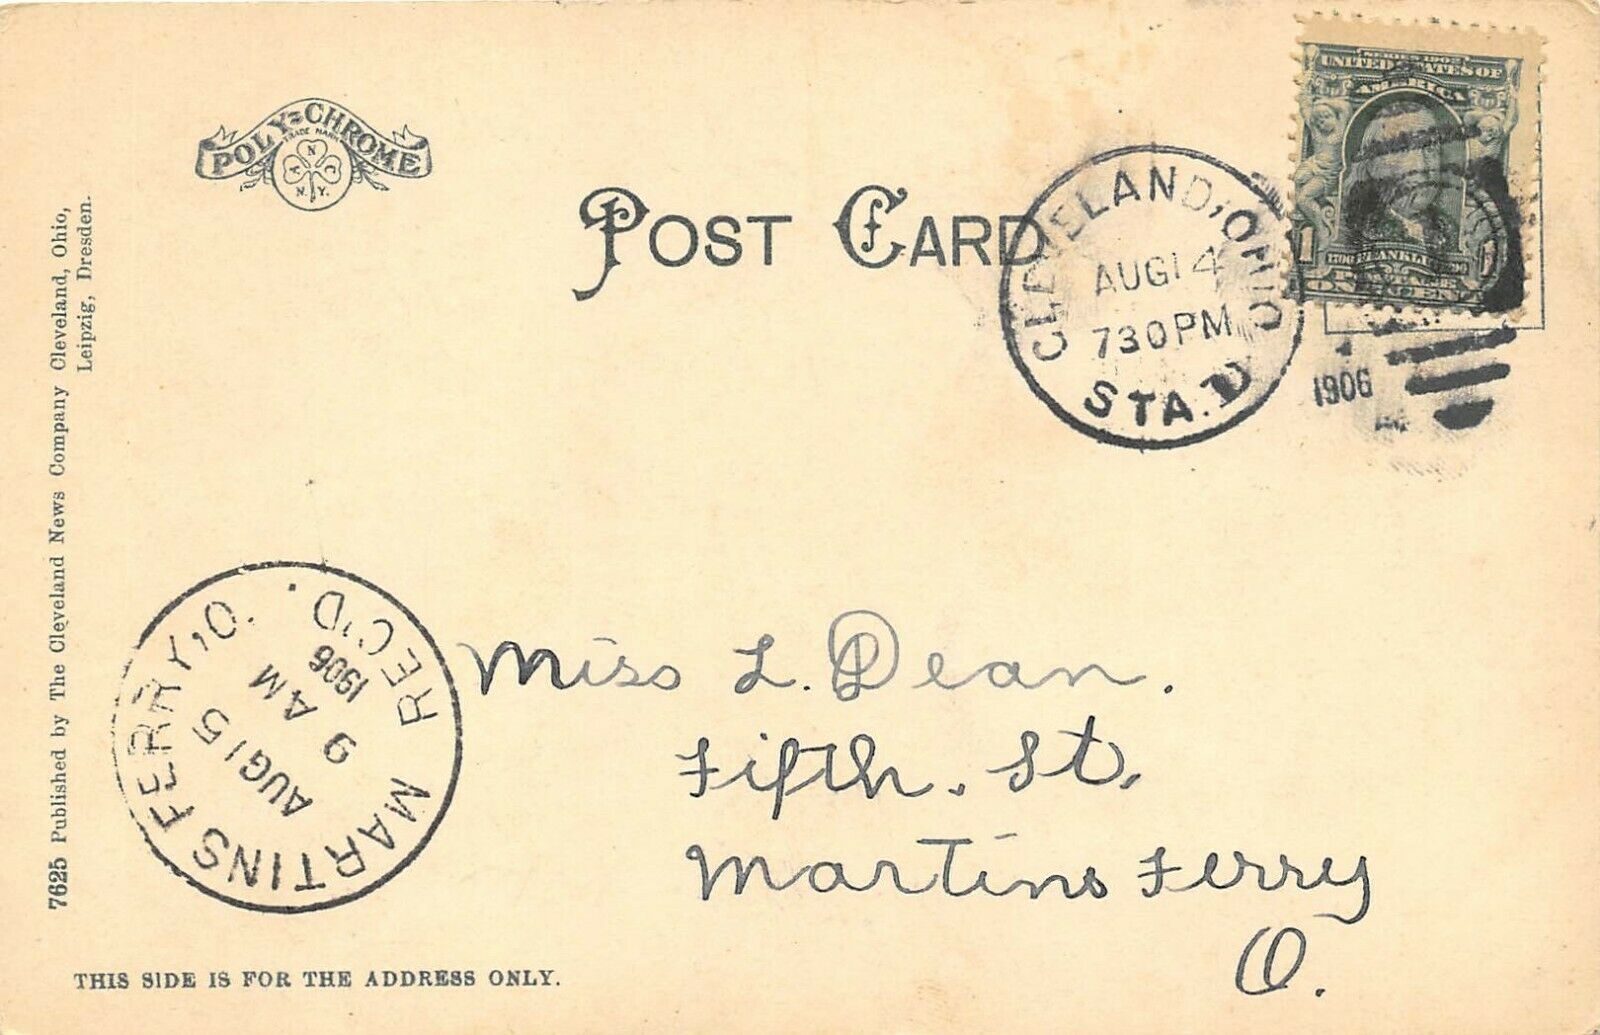 POLY-CHROME
TRADE MARK
A N C
N. Y.
POST CARD
CLEVELAND, OHIO
AUG 14
730 PM
STA. D
1906
SERIES 1902
UNITED STATES OF
AMERICA
1706 FRANKLIN 1790
POSTAGE
ONE CENT
7625 Published by The Cleveland News Company Cleveland, Ohio,
Leipzig, Dresden.
MARTINS FERRY, O.
AUG 15
9 AM
1906
REC'D.
Miss L. Dean.
Fifth. St.
Martins Ferry
O.
THIS SIDE IS FOR THE ADDRESS ONLY.